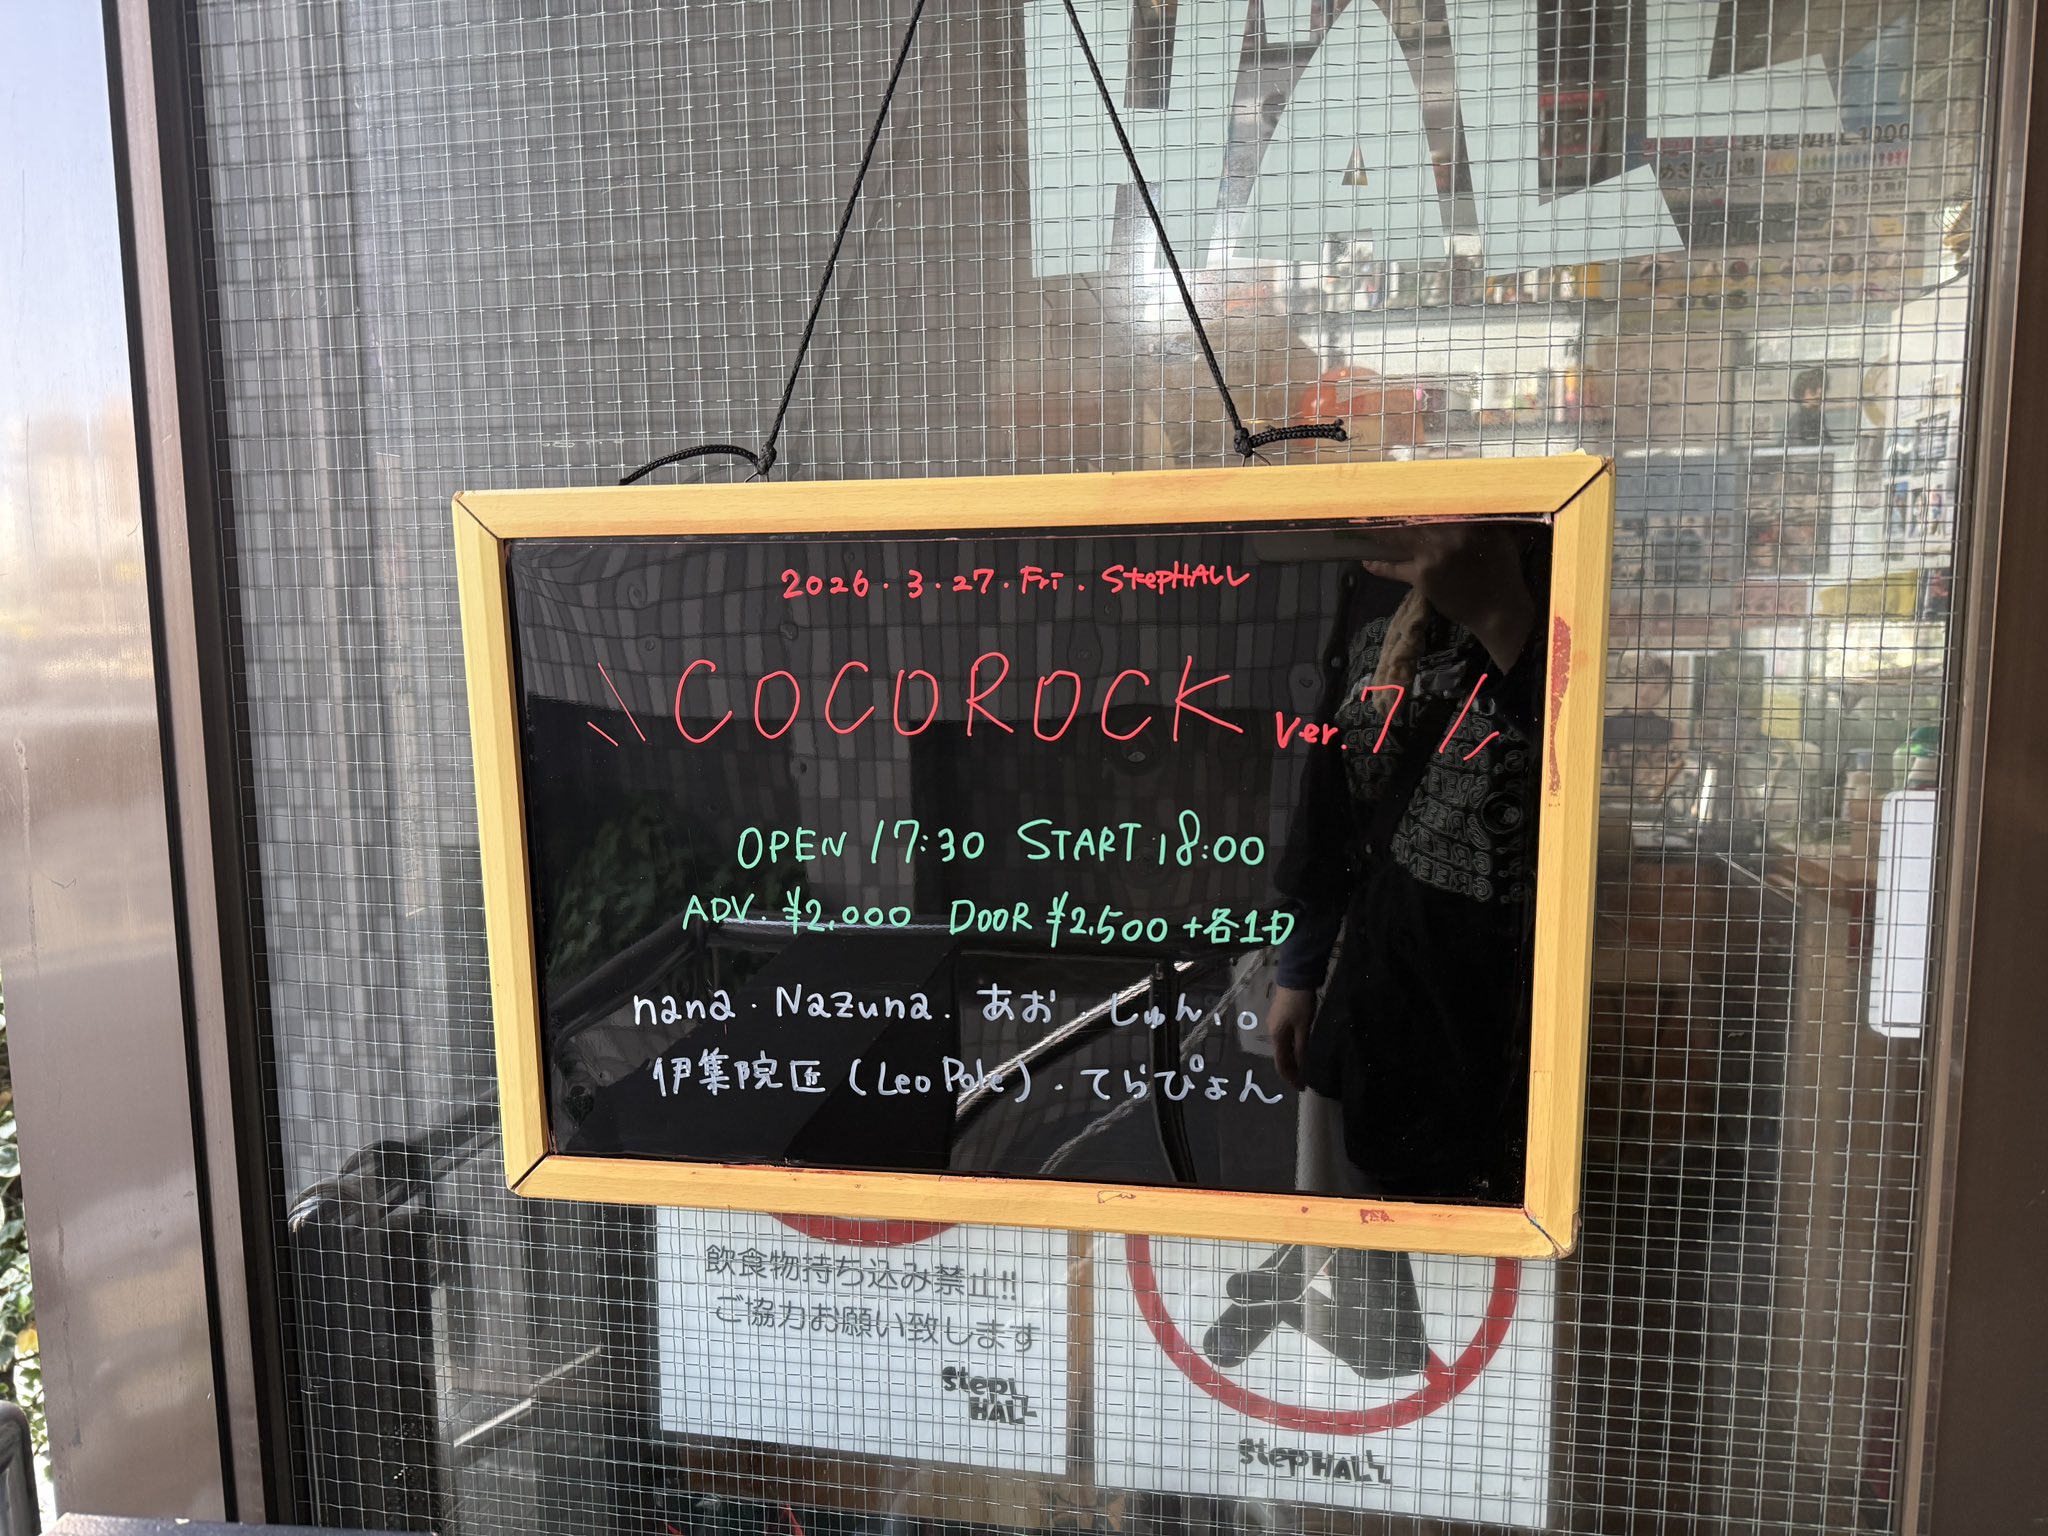 HALL
2026.3.27.Fri. StepHALL
\\ COCOROCK ver.7 //
OPEN 17:30 START 18:00
ADV. ¥2,000 DOOR ¥2,500 +各1D
nana・Nazuna. あお・しゅん、。
伊集院匠(Leo Pole)・てらぴょん
飲食物持ち込み禁止!!
ご協力お願い致します
step HALL
stepHALL